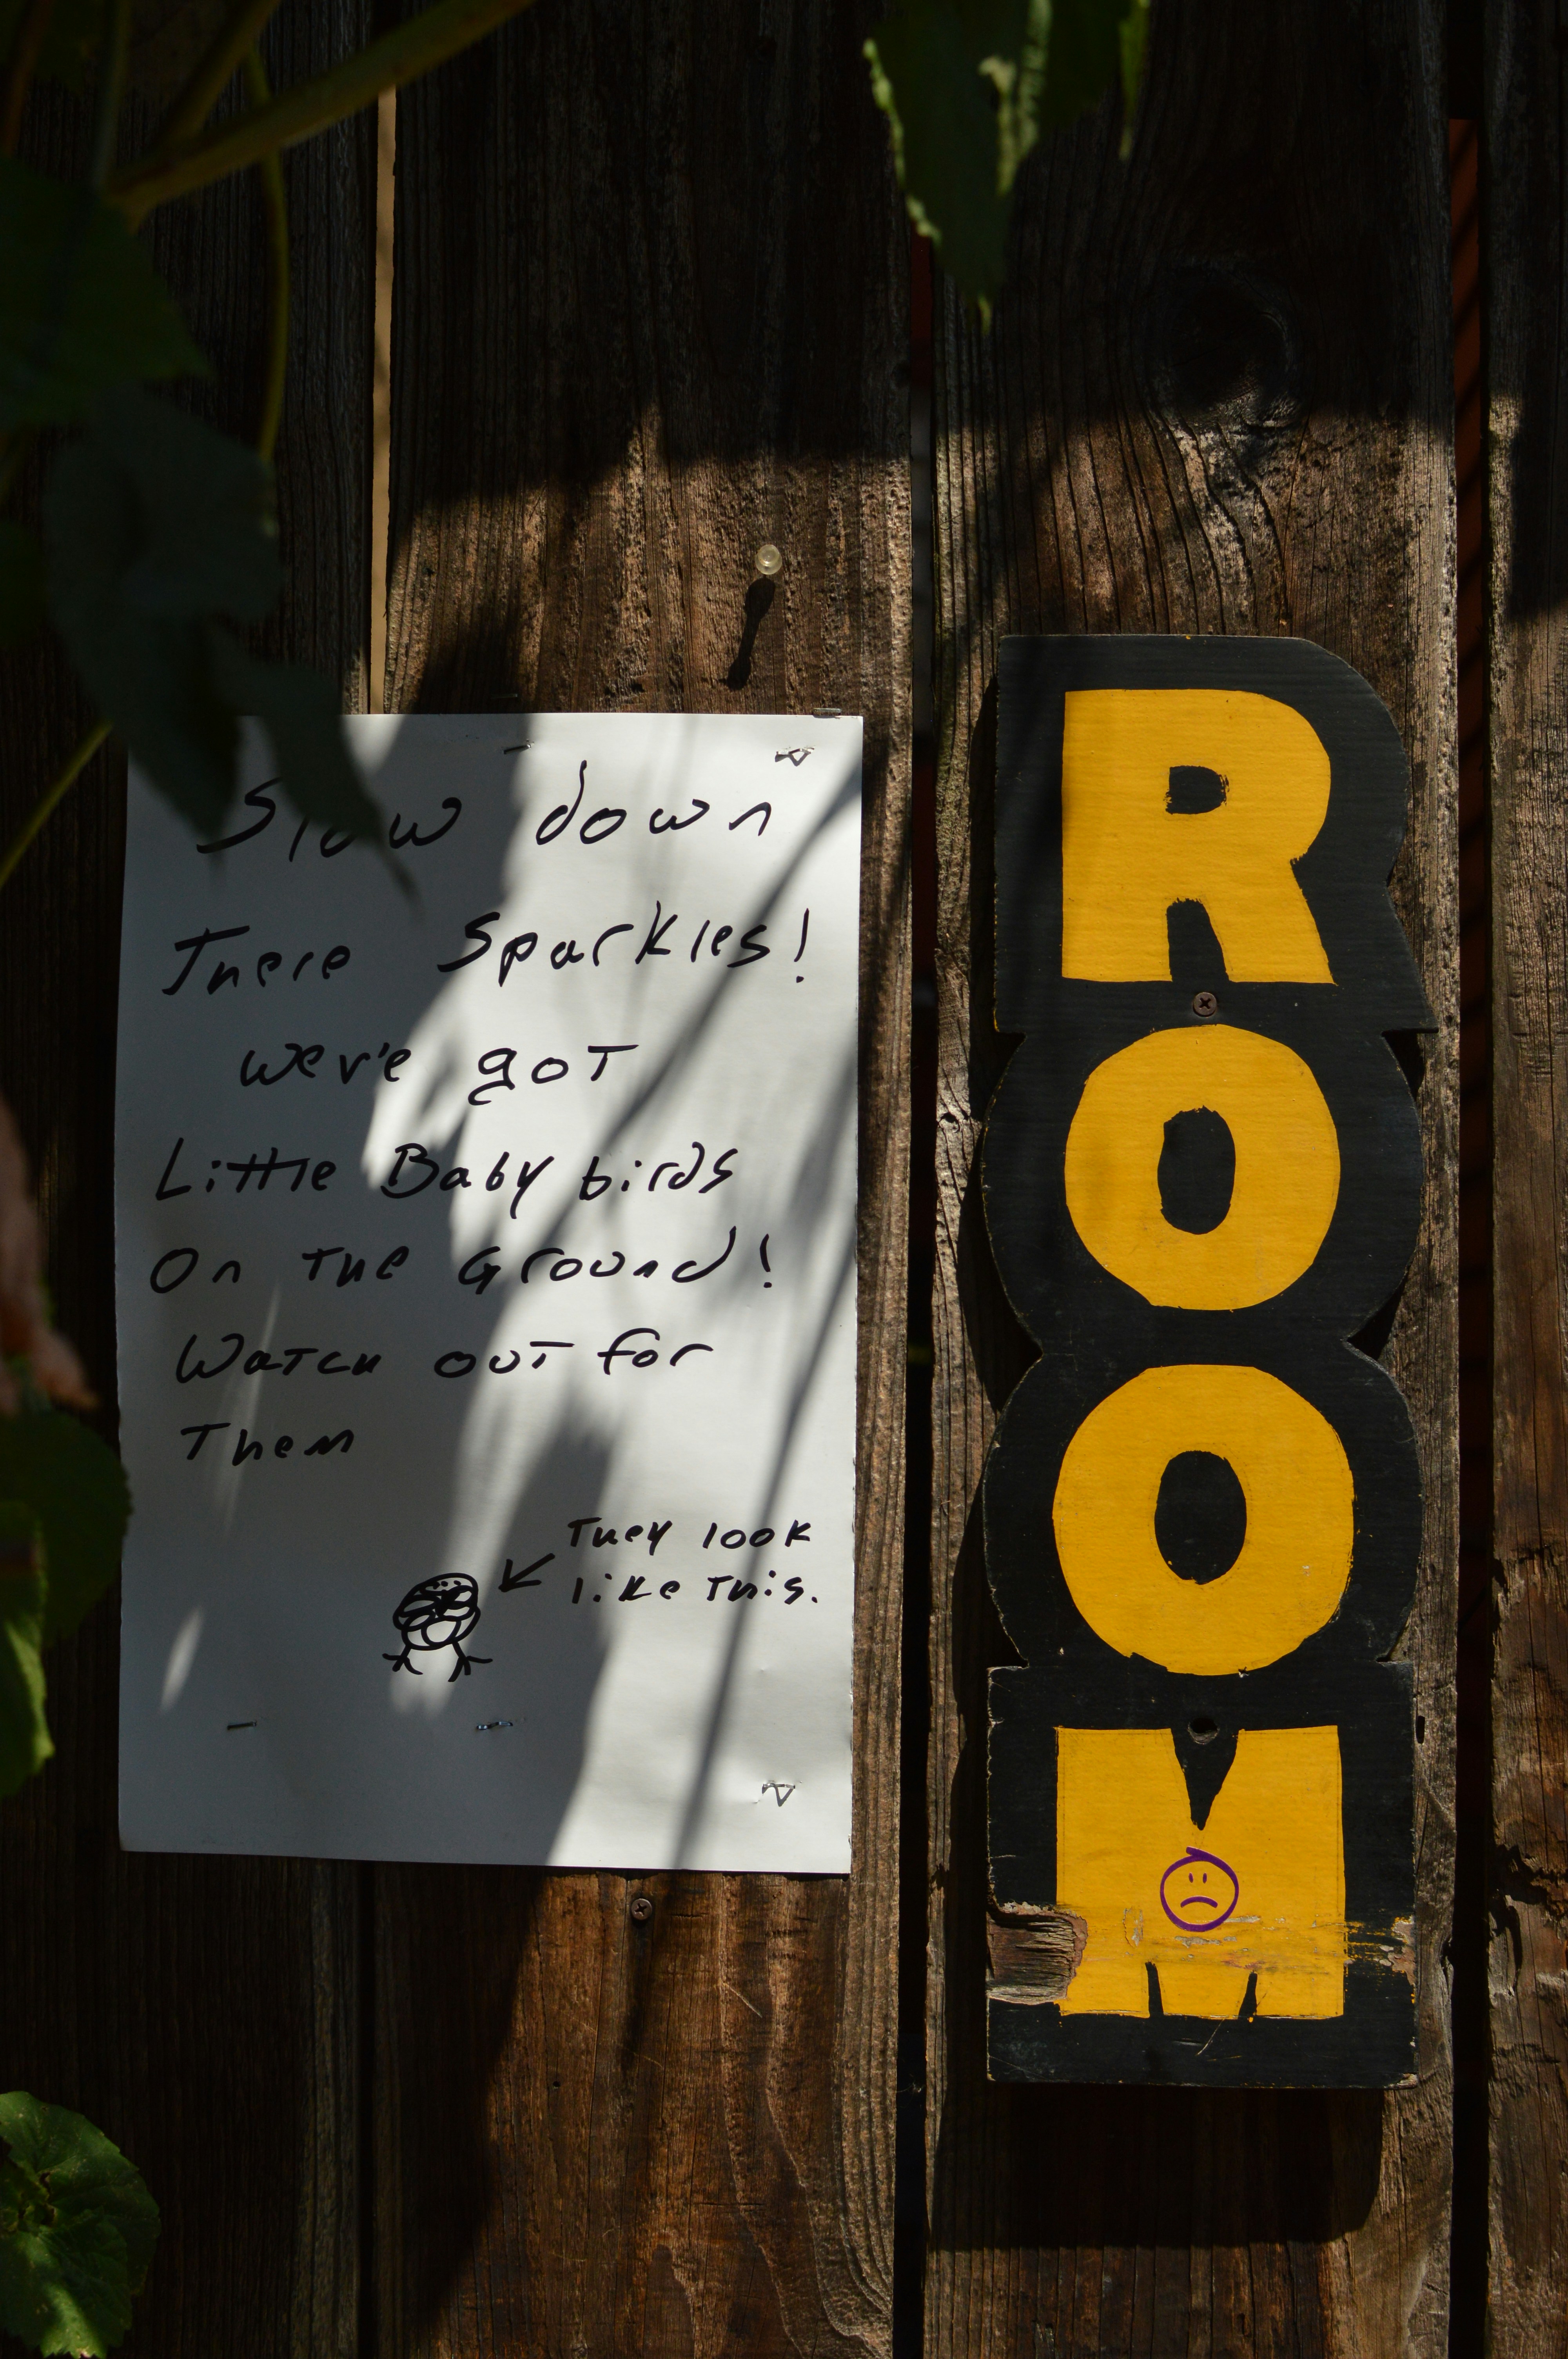 Slow down
There Sparkles!
wev'e got
Little Baby birds
On the Ground!
Watch out for
Them
They look
like this.
ROOM